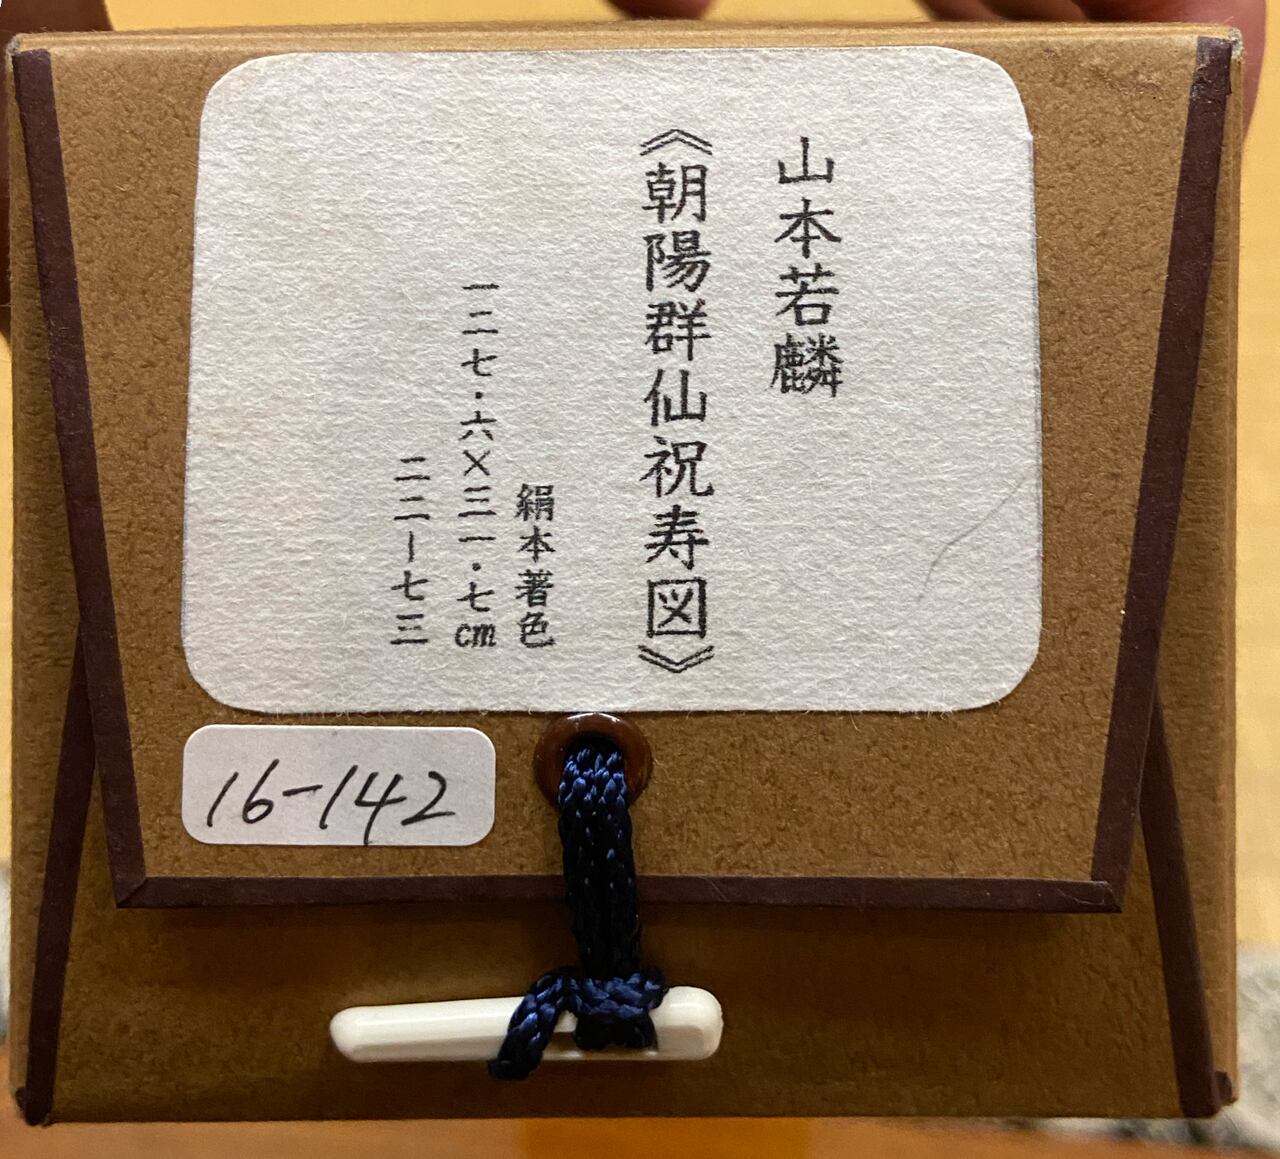 山本若麟
《朝陽群仙祝寿図》
絹本著色
一二七・六×三一・七cm
二二ー七三
16-142